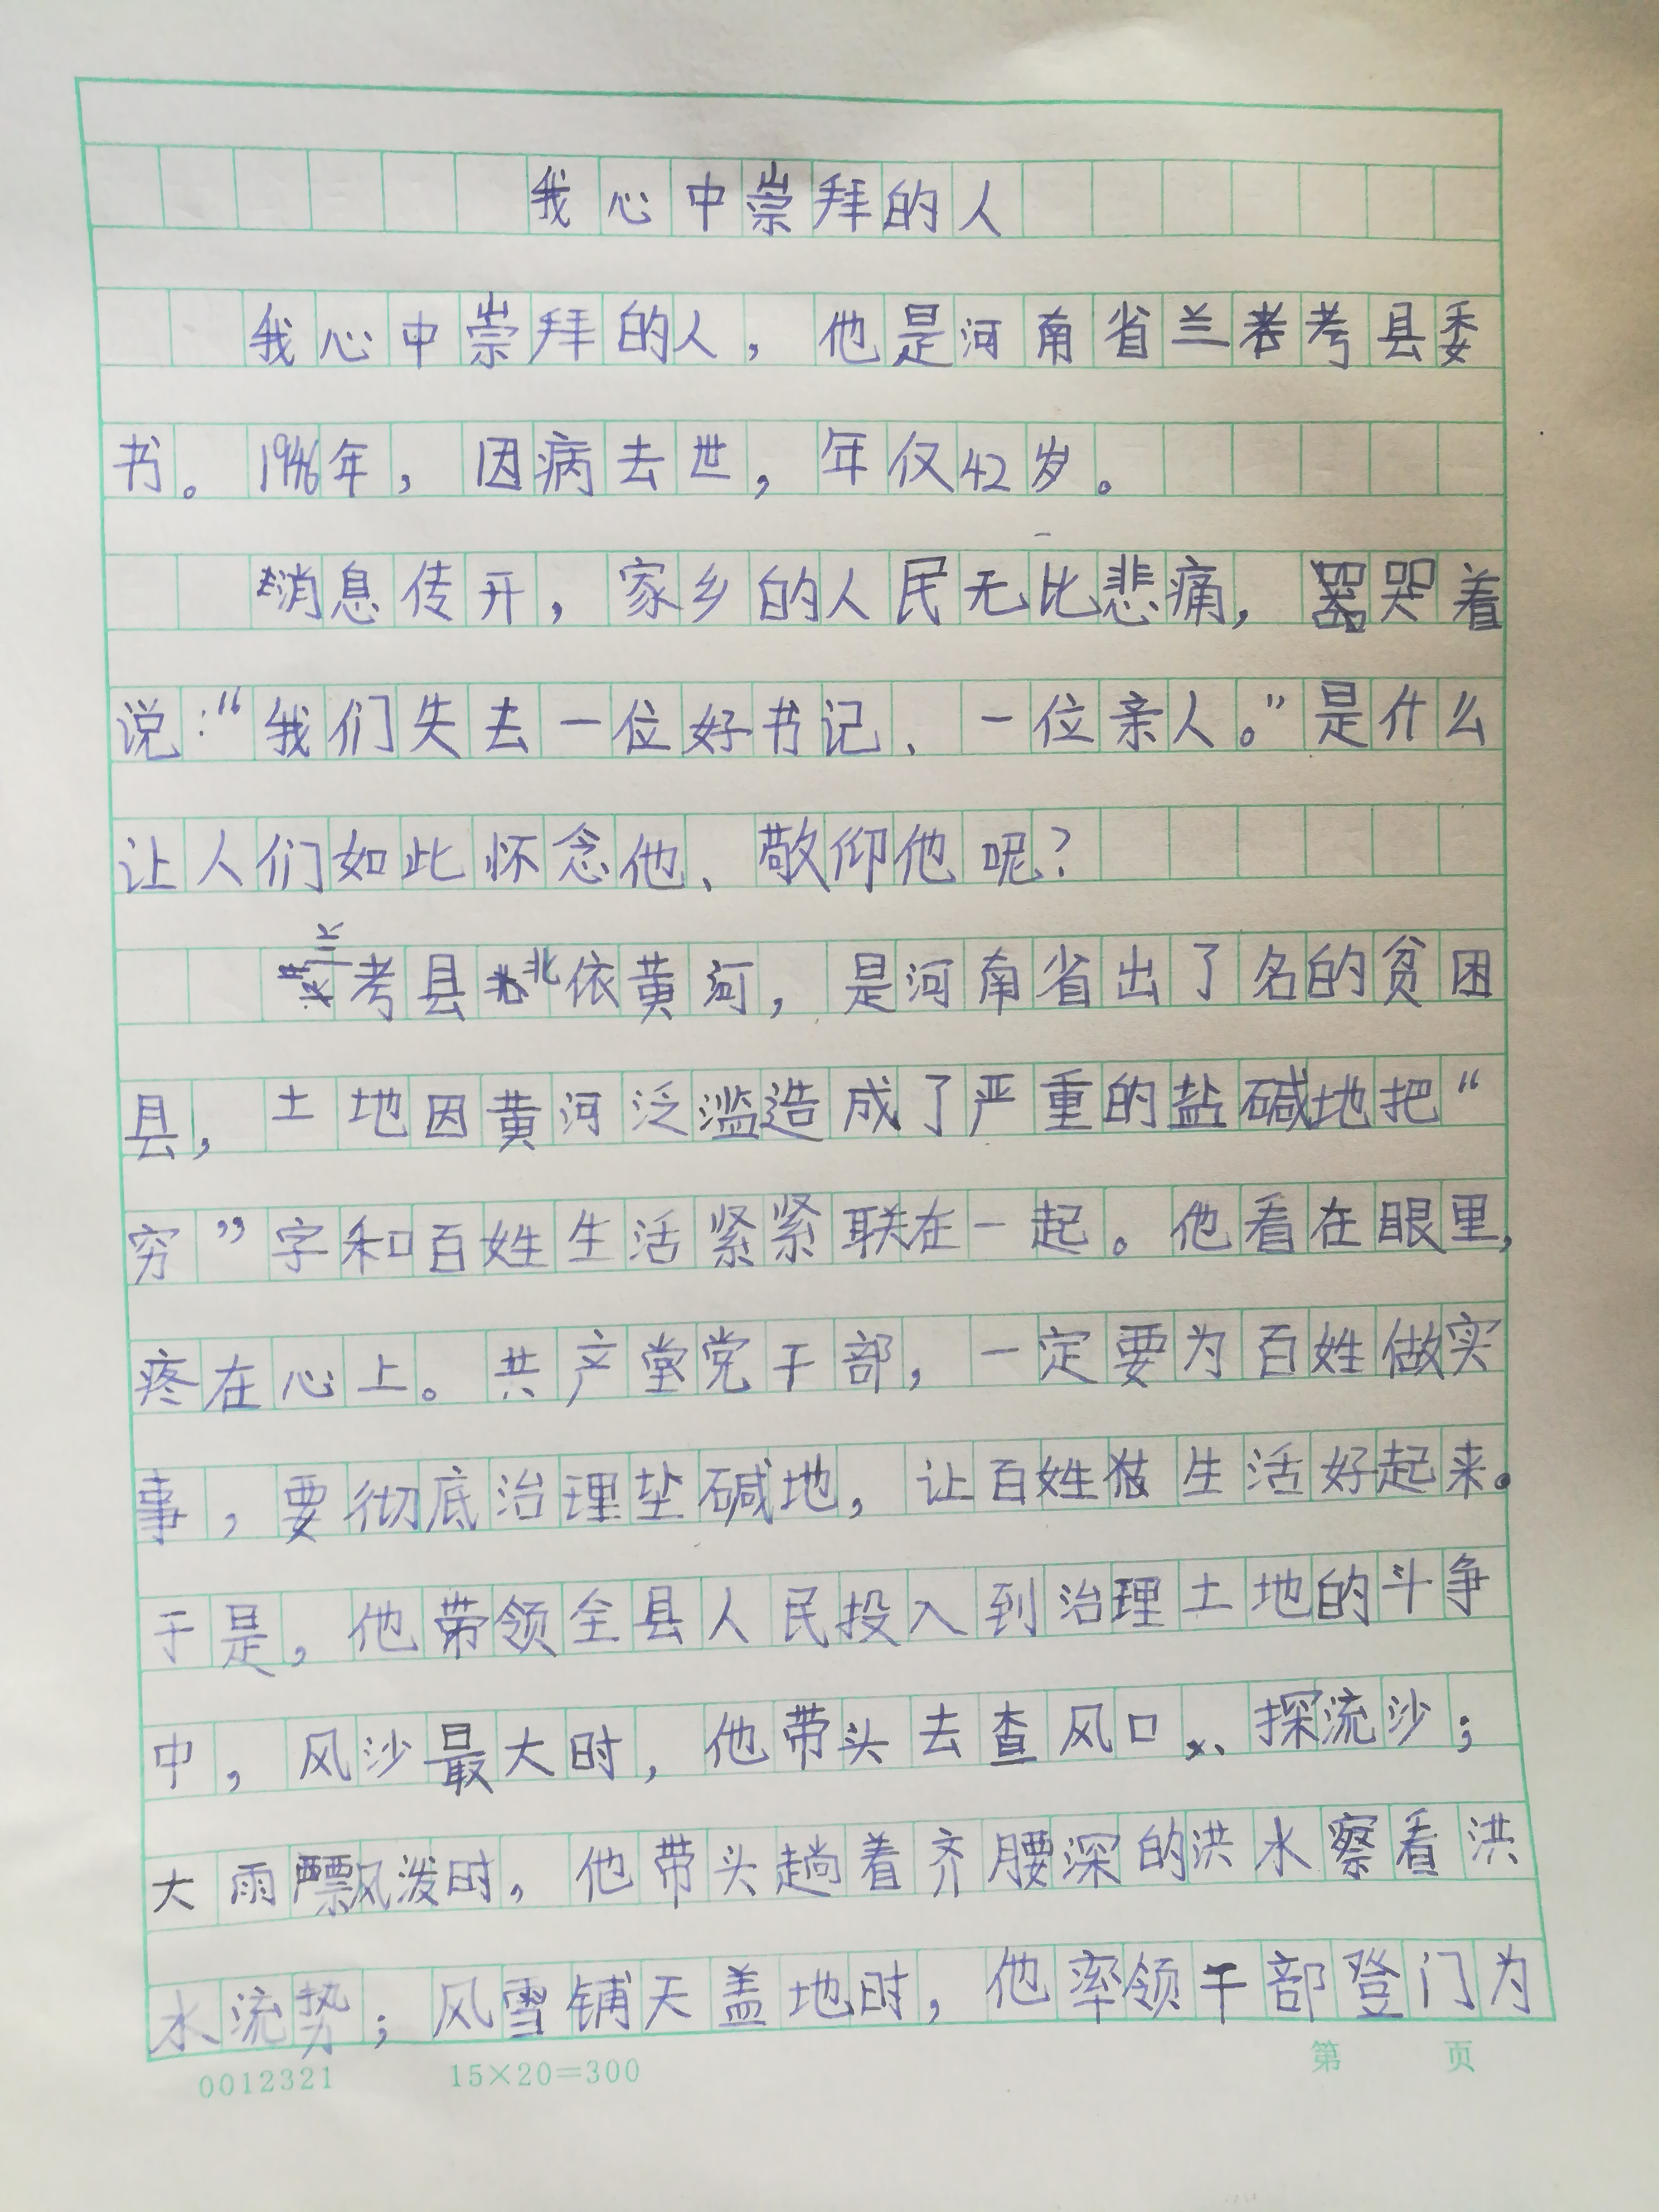 我心中崇拜的人
我心中崇拜的人，他是河南省兰考县委
书。1946年，因病去世，年仅42岁。
消息传开，家乡的人民无比悲痛，哭着
说：“我们失去一位好书记、一位亲人。”是什么
让人们如此怀念他、敬仰他呢？
兰考县北依黄河，是河南省出了名的贫困
县，土地因黄河泛滥造成了严重的盐碱地把“
穷”字和百姓生活紧紧联在一起。他看在眼里，
疼在心上。共产堂党干部，一定要为百姓做实
事，要彻底治理垫碱地，让百姓生活好起来。
于是，他带领全县人民投入到治理土地的斗争
中，风沙最大时，他带头去查风口、探流沙；
大雨飘泼时，他带头趟着齐腰深的洪水察看洪
水流势；风雪铺天盖地时，他率领干部登门为
0012321 15×20=300 第 页